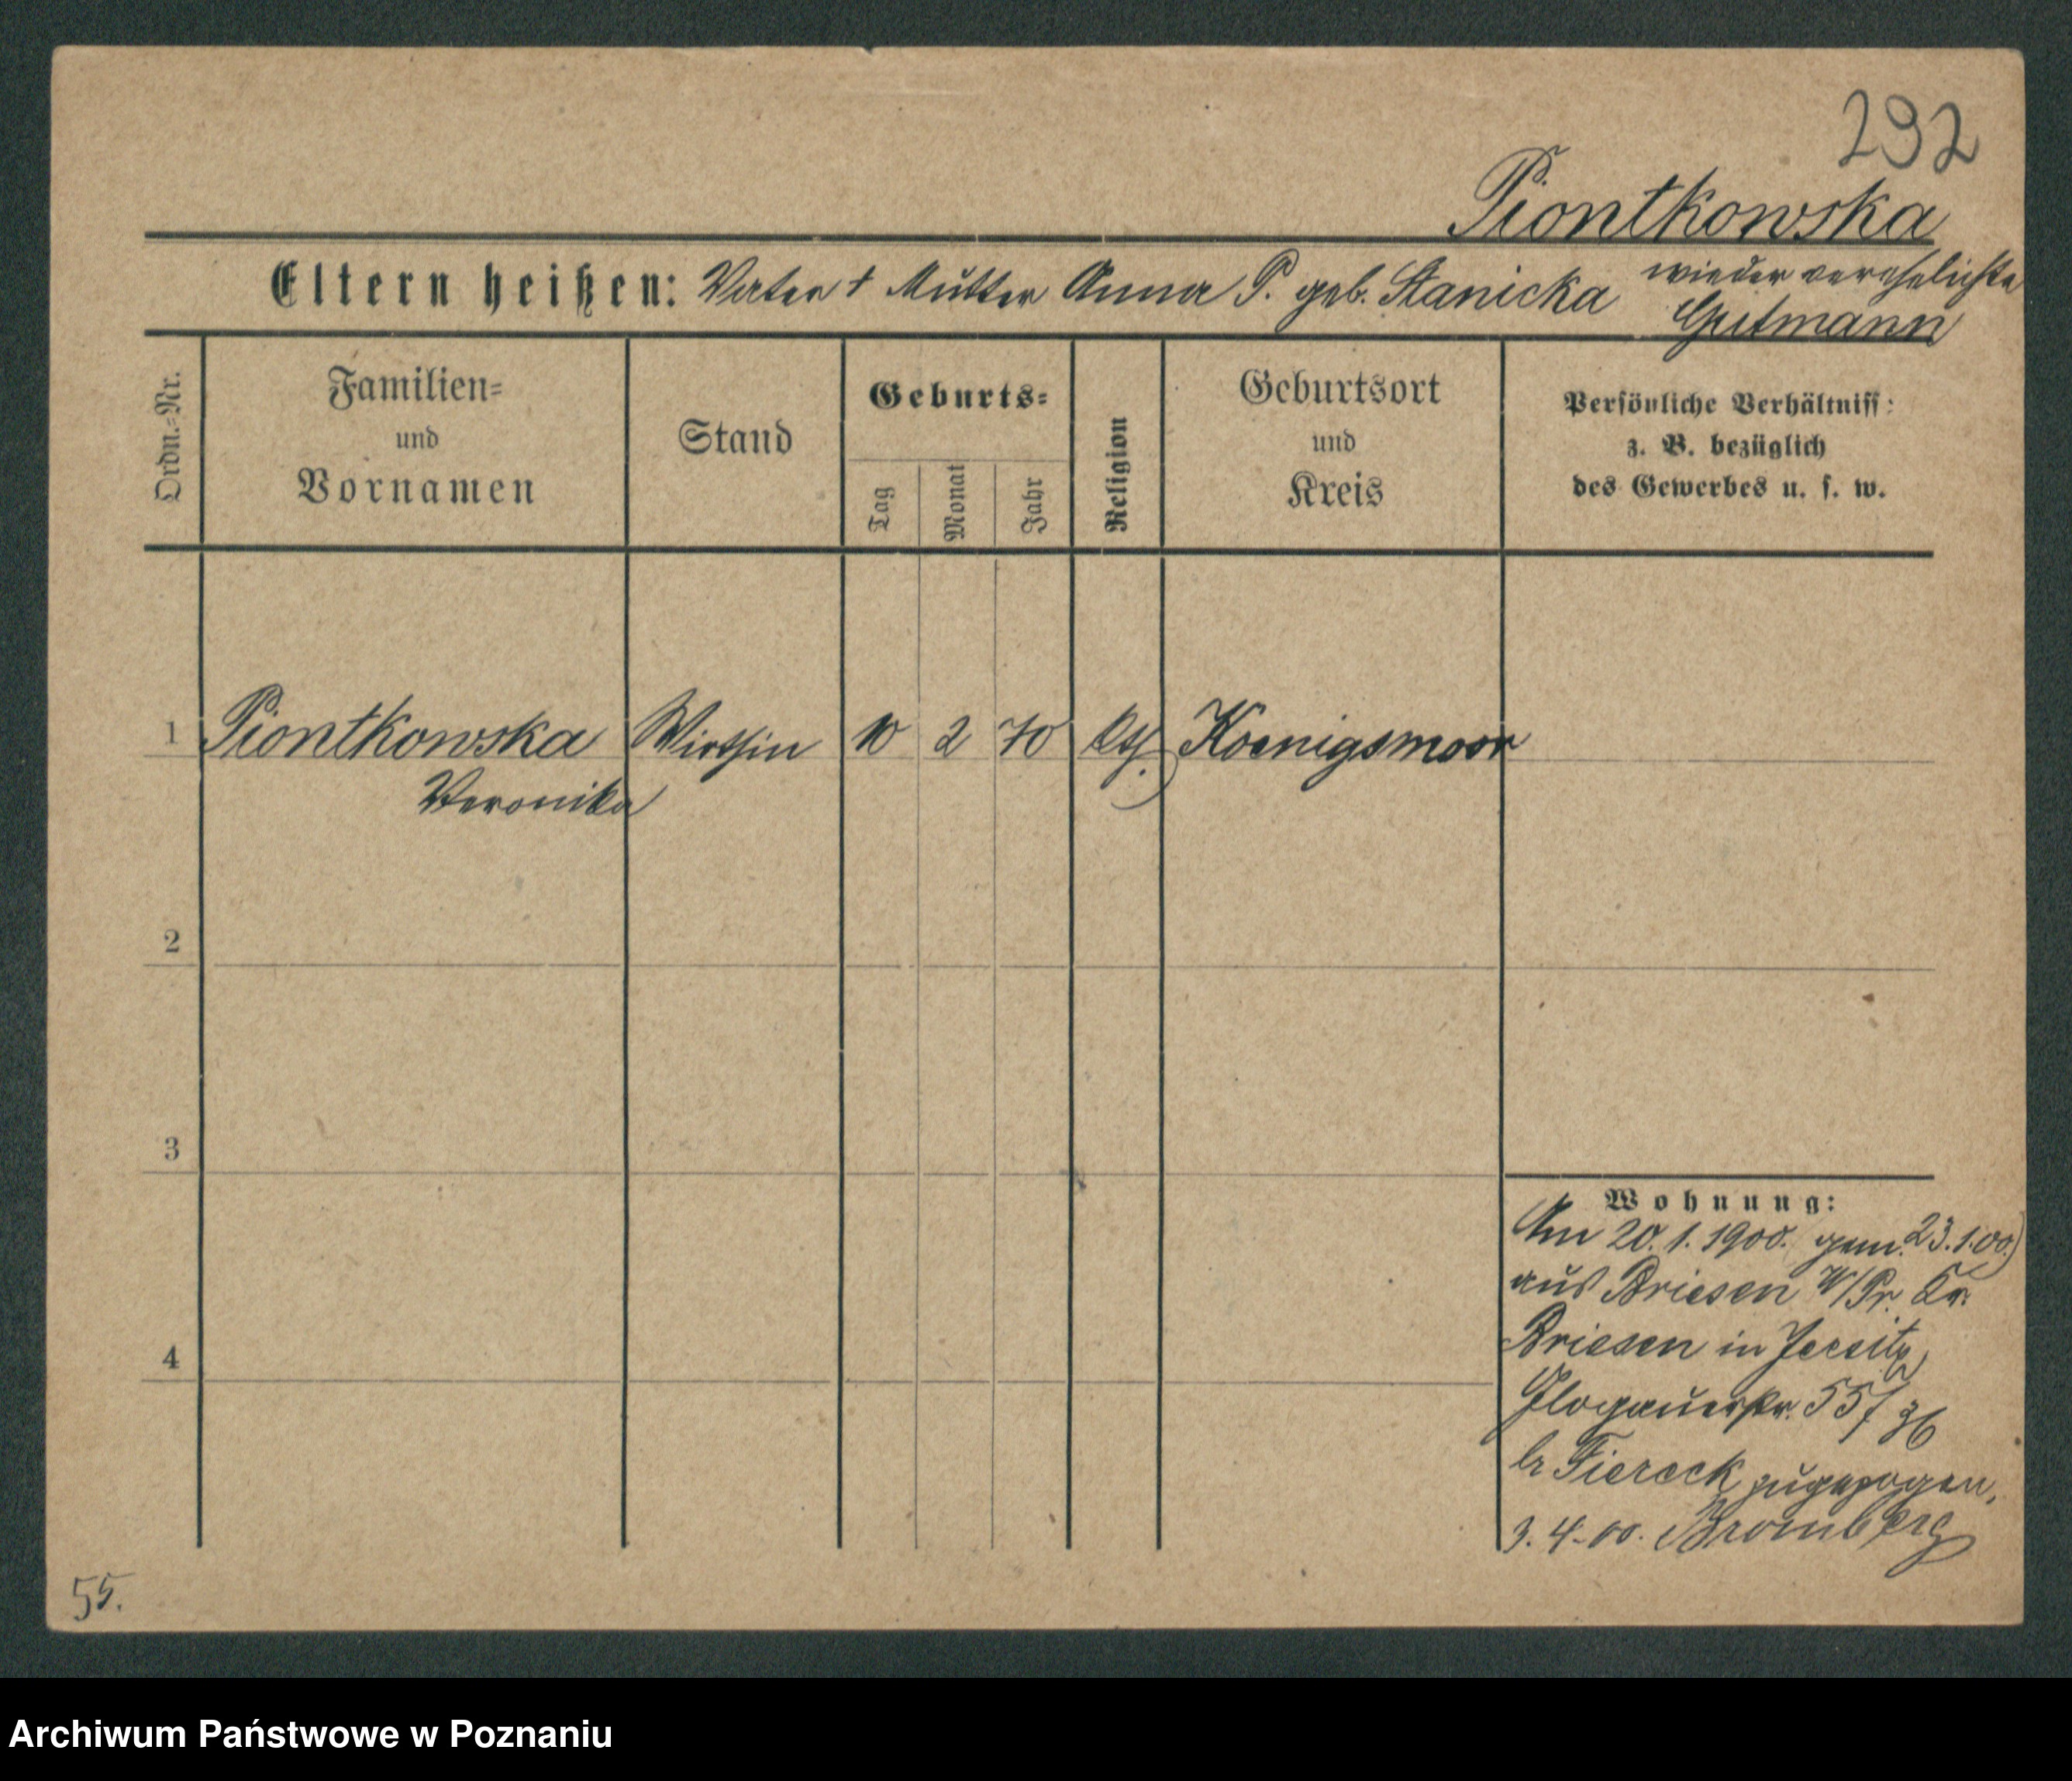 292
Piontkowska
Eltern heißen: Vater † Mutter Anna P. geb. Stanicka wieder verehelichte
Gutmann
Ordn.-Nr.
Familien-
und
Vornamen
Stand
Geburts-
Tag
Monat
Jahr
Religion
Geburtsort
und
Kreis
Persönliche Verhältniss:
z. B. bezüglich
des Gewerbes u. s. w.
1 Piontkowska Wirthin 10 2 70 kth. Koenigsmoor
Veronika
2
3
4
Wohnung:
Am 20.1.1900. gem. 23.1.00)
aus Briesen W/Pr. Kr.
Briesen in Jersitz
Glogauerstr. 55
zugezogen.
3.4.00. Bromberg
55.
Archiwum Państwowe w Poznaniu